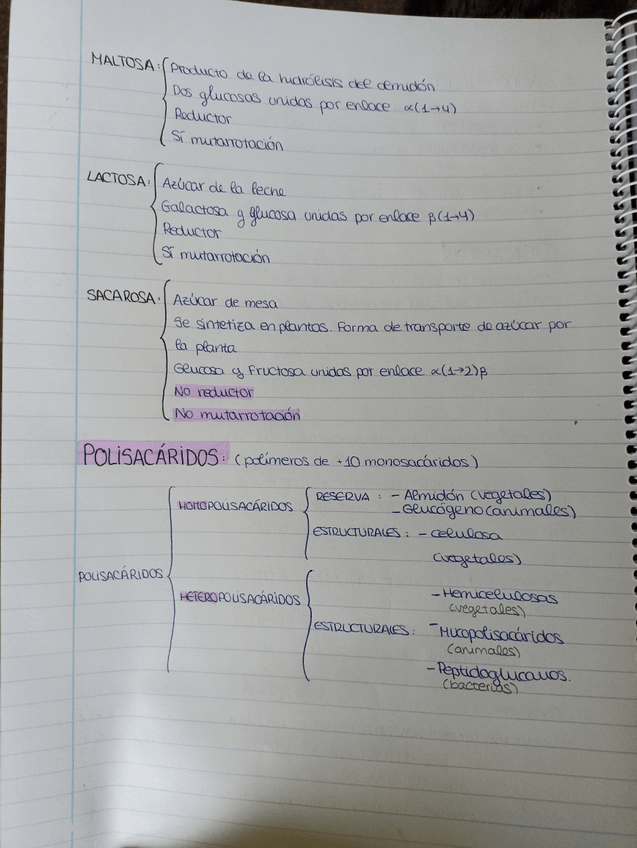 MALTOSA: Producto de la hidrólisis del almidón
Dos glucosas unidas por enlace α(1→4)
Reductor
Sí mutarrotación
LACTOSA: Azúcar de la leche
Galactosa y glucosa unidas por enlace β(1→4)
Reductor
Sí mutarrotación
SACAROSA: Azúcar de mesa
Se sintetiza en plantas. Forma de transporte de azúcar por
la planta
Glucosa y Fructosa unidas por enlace α(1→2)β
No reductor
No mutarrotación
POLISACÁRIDOS: (polímeros de +10 monosacáridos)
POLISACÁRIDOS
HOMOPOLISACÁRIDOS
RESERVA: - Almidón (vegetales)
- Glucógeno (animales)
ESTRUCTURALES: - celulosa
(vegetales)
HETEROPOLISACÁRIDOS
ESTRUCTURALES:
- Hemicelulosas
(vegetales)
- Mucopolisacáridos
(animales)
- Peptidoglucanos.
(bacterias)